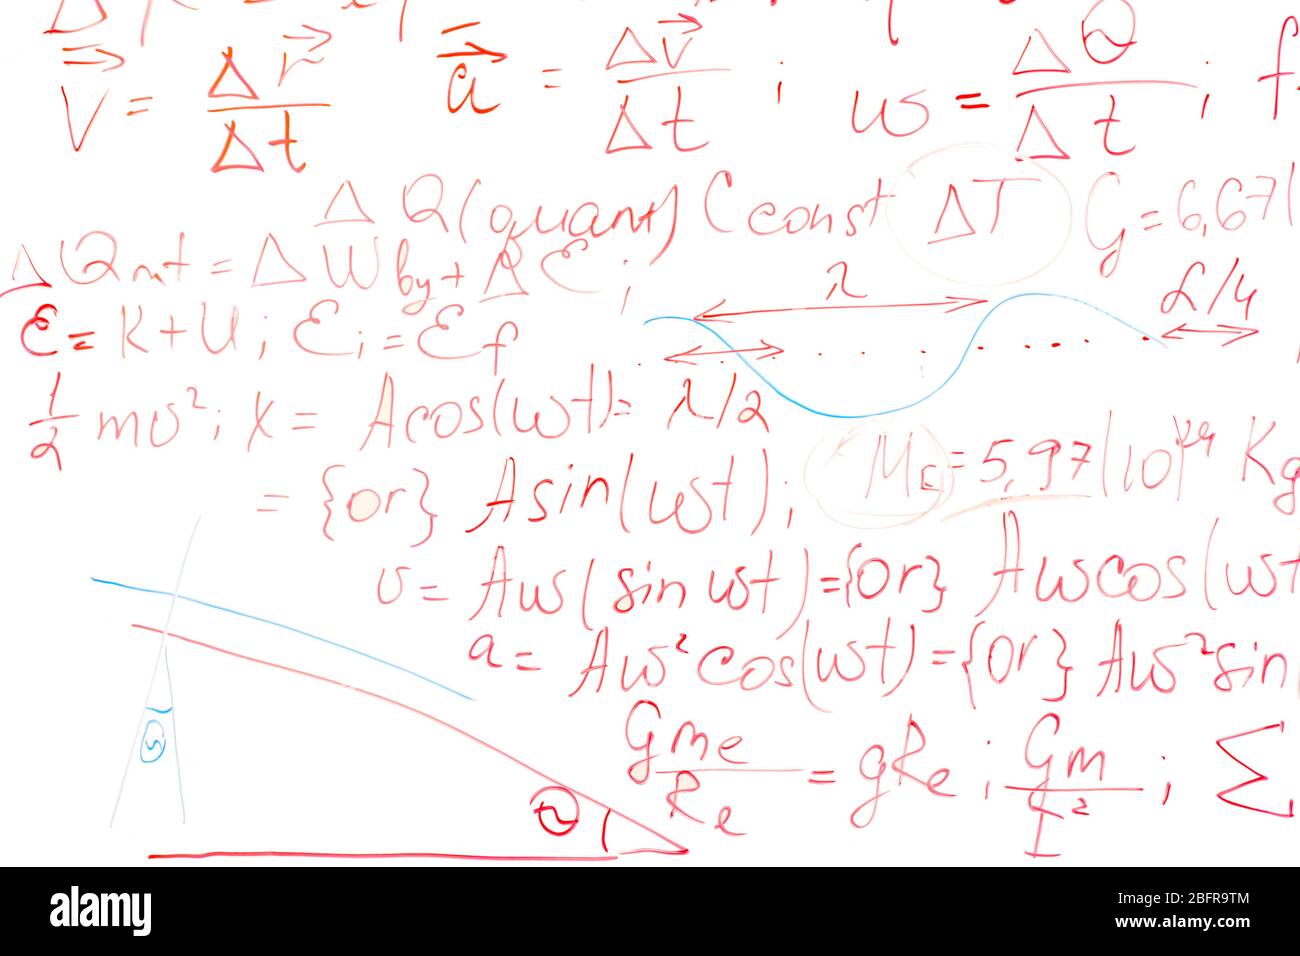 V⃗ = Δr⃗/Δt a⃗ = Δv⃗/Δt ; ω = ΔΘ/Δt ; f
ΔQ(quant) C const ΔT G = 6,67
ΔQ = ΔW by + Δℰ ;
λ
ℰ = K + U ; ℰi = ℰf
λ/4
1/2 mv² ; X = Acos(ωt) = λ/2
M = 5,97 (10)²⁴ Kg
= {or} Asin(ωt) ;
v = Aω(sin ωt) = {or} Aωcos(ωt
a = Aω²cos(ωt) = {or} Aω²sin
Gme/Re = gRe ; Gm/r² ; Σ
Θ
Θ
alamy
Image ID: 2BFR9TM
www.alamy.com